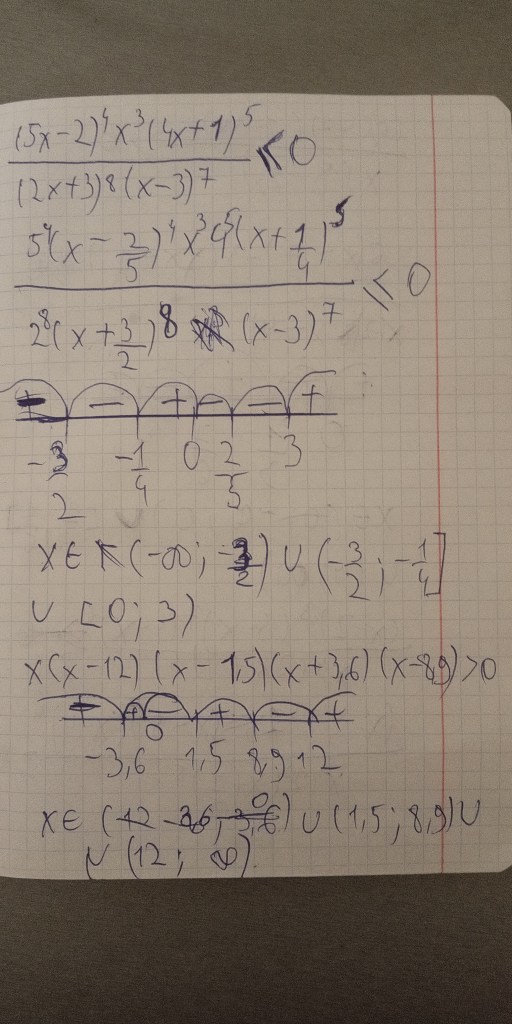 (5x-2)⁴x³(4x+1)⁵
(2x+3)⁸(x-3)⁷
⩽0
5⁴(x-2/5)⁴x³4⁵(x+1/4)⁵
2⁸(x+3/2)⁸ (x-3)⁷
⩽0
- - + - - +
-3/2 -1/4 0 2/5 3
x∈ (-∞; -3/2) ∪ (-3/2; -1/4]
∪ [0; 3)
x(x-12)(x-1,5)(x+3,6)(x-8,9)>0
- + - + - +
0
-3,6 1,5 8,9 12
x∈ (-3,6; 0) ∪ (1,5; 8,9)∪
∪ (12; ∞)